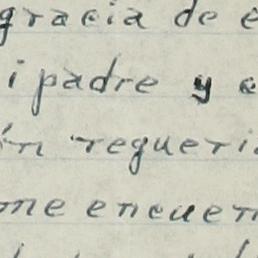 gracia de e
i padre y e
ín requeri
me encuen